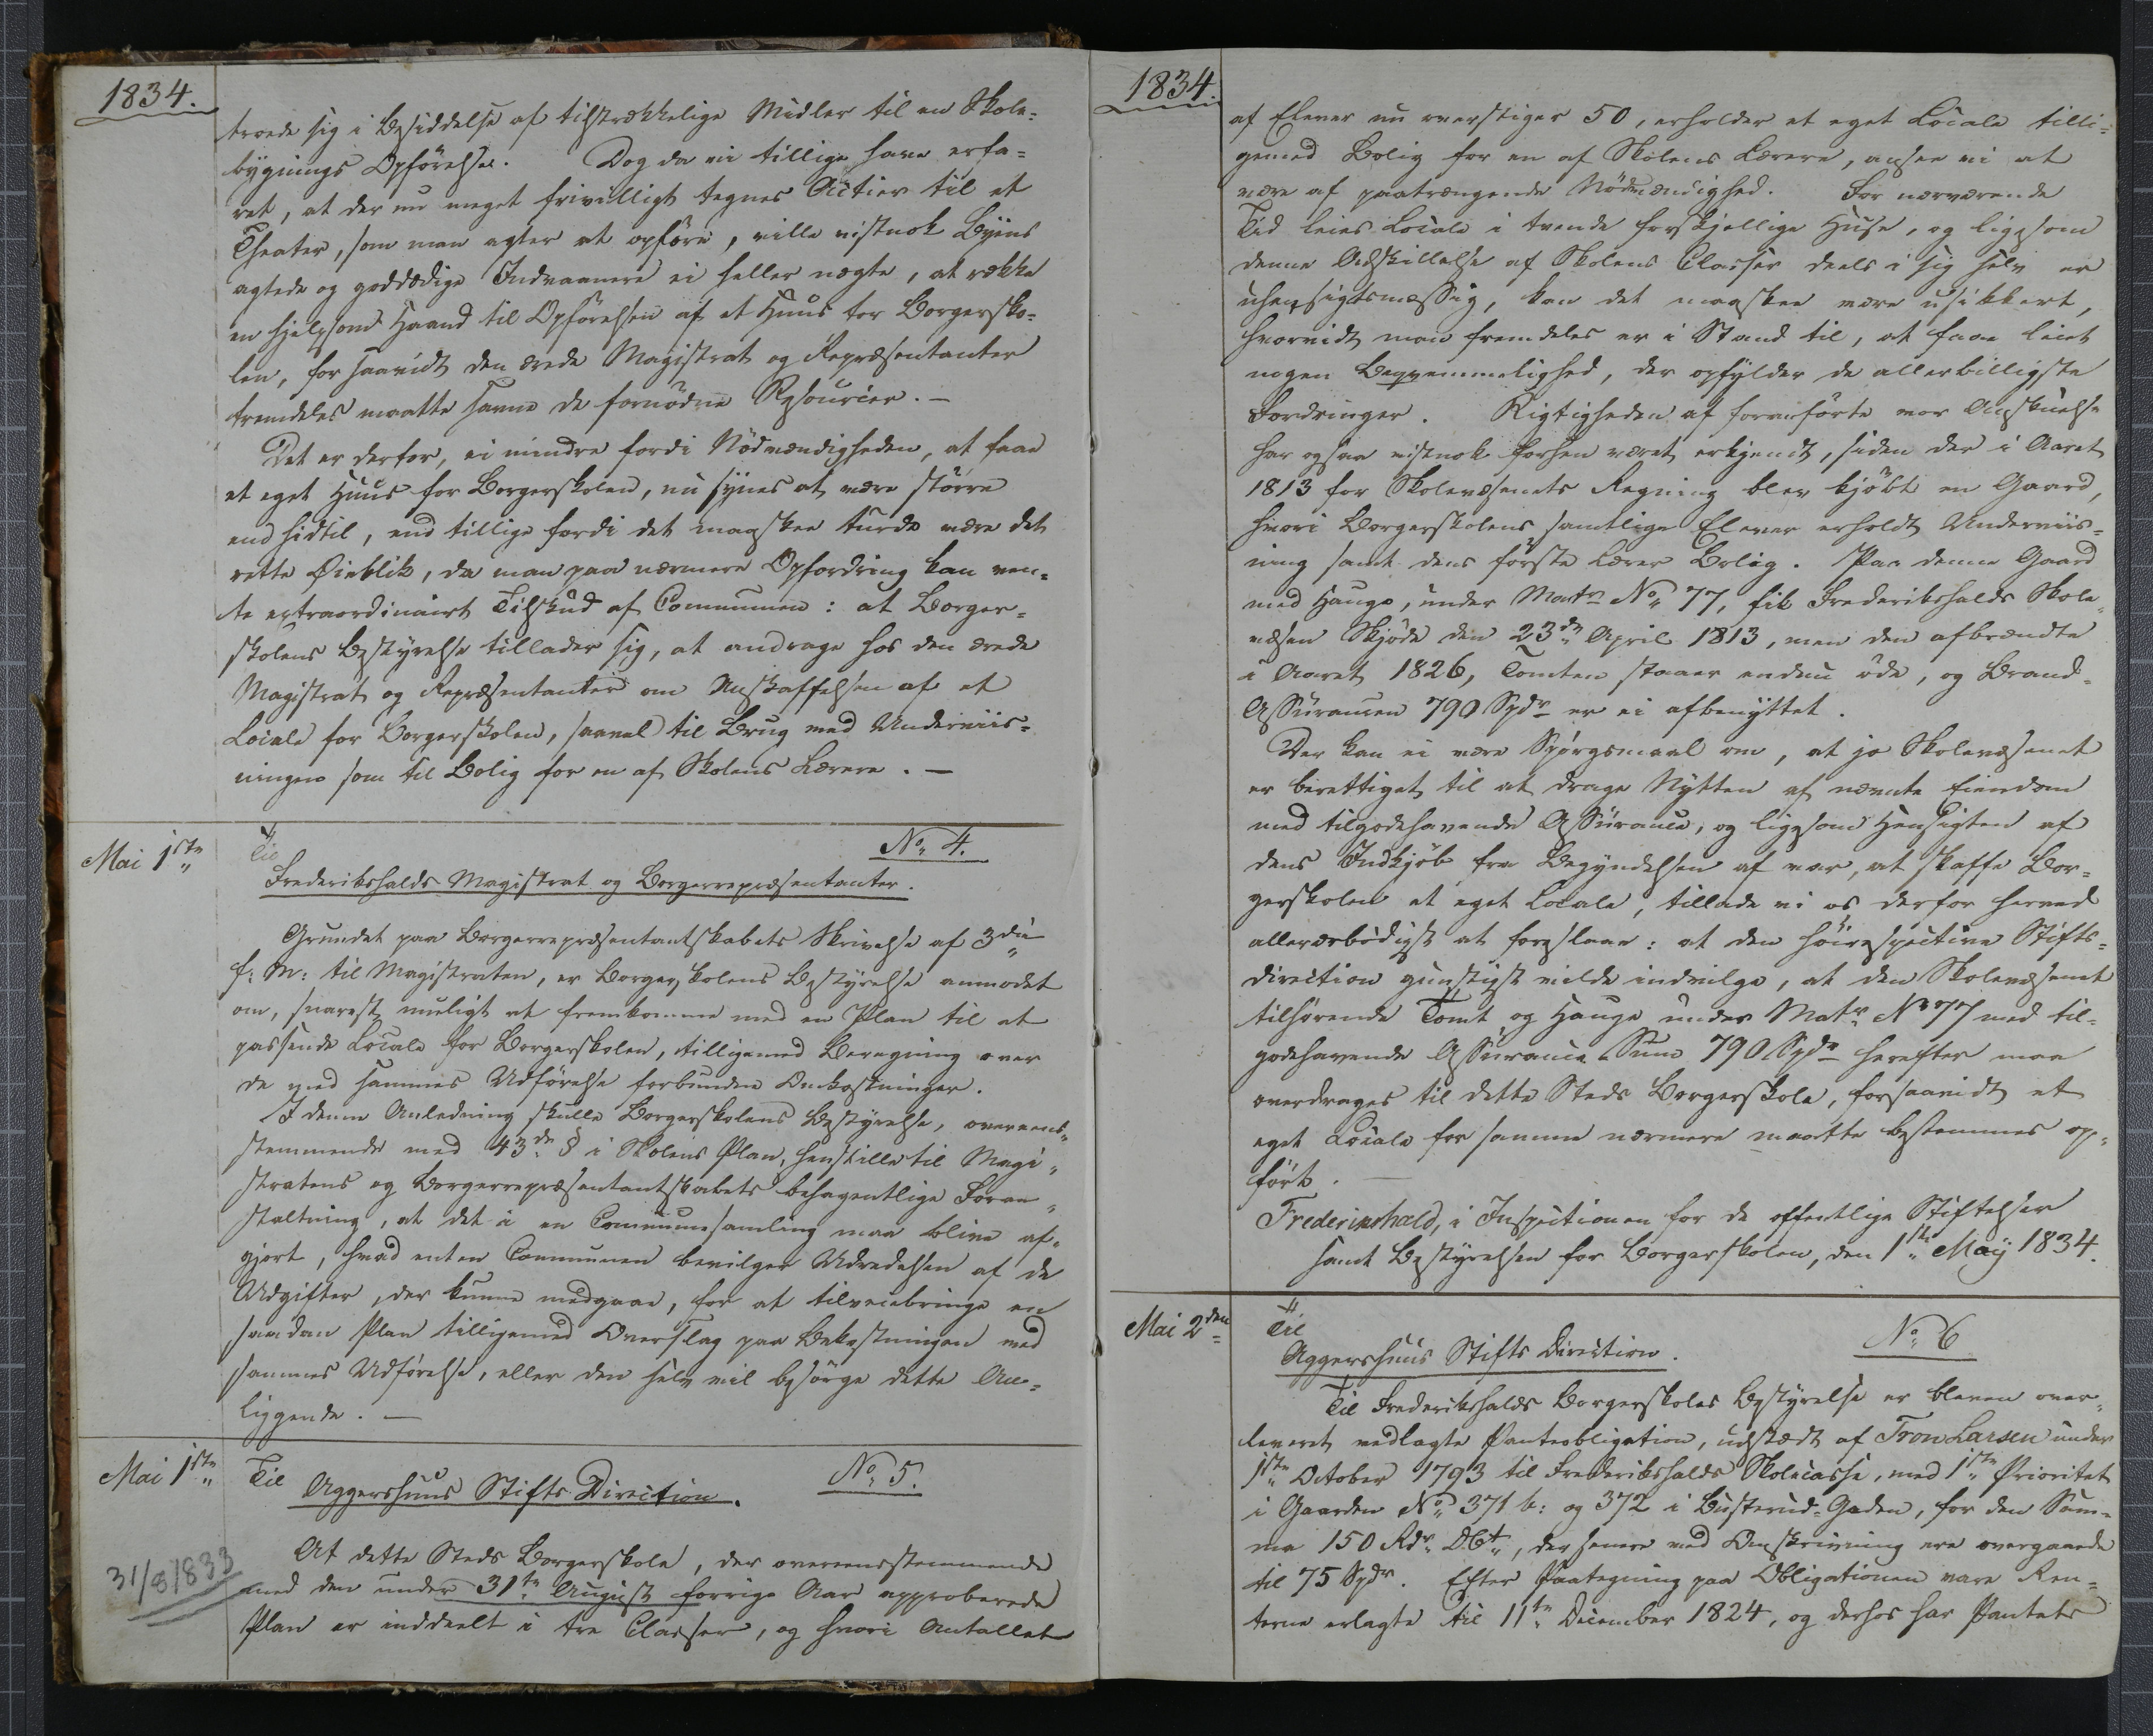 1834.
troede sig i Besiddelse af tilstrækkelige Midler til en Skole-
bygnings Opførelse. Dog da vi tillige have erfa-
ret, at der nu meget frivilligt tegnes Actier til et
Theater, som man agter at opføre, ville vistnok Byens
agtede og goddædige Indvaanere ei heller nægte, at række
en hjelpsom Haand til Opførelsen af et Huus for Borgersko-
len, forsaavidt den ærede Magistrat og Repræsentanter
fremdeles maatte savne de fornødne Resourcer. —
Det er derfor, ei mindre fordi Nødvændigheden, at faae
et eget Huus for Borgerskolen, nu synes at være større
end hidtil, end tillige fordi det maaskee turde være det
rette Øieblik, da man paa nærmere Opfordring kan ven-
te extraordinairt Tilskud af Communen: at Borger-
skolens Bestyrelse tillader sig, at andrage hos den ærede
Magistrat og Repræsentanter om Anskaffelsen af et
Locale for Borgerskolen, saavel til Brug med Underviis-
ningen som til Bolig for en af Skolens Lærere. —
Mai 1ste
Til
No 4.
Frederikshalds Magistrat og Borgerrepræsentanter.
Grundet paa Borgerrepræsentantskabets Skrivelse af 3die
f: M: til Magistraten, er Borgerskolens Bestyrelse anmodet
om, snarest muligt at fremkomme med en Plan til et
passende Locale for Borgerskolen, tilligemed Beregning over
de med sammes Udførelse forbundne Omkostninger.
I denne Anledning skulle Borgerskolens Bestyrelse, overeens-
stemmende med 43de § i Skolens Plan, henstille til Magi-
stratens og Borgerrepræsentantskabets behagentlige Foran-
staltning, at det i en Communesamling maa blive af-
gjort, hvad enten Communen bevilger Udredelsen af de
Udgifter, der kunne medgaae, for at tilveiebringe en
saadan Plan tilligemed Overslag paa Bekostningen med
sammes Udførelse, eller den selv vil besørge dette An-
liggende. —
Mai 1ste
Til
Aggershuus Stifts Direction.
No 5.
31/8 1833
At dette Steds Borgerskole, der overeensstemmende
med den under 31te August forrige Aar approberede
Plan er inddeelt i tre Classer, og hvori Antallet
1834.
af Elever nu overstiger 50, erholder et eget Locale tilli-
gemed Bolig for en af Skolens Lærere, ansee vi at
være af paatrængende Nødvændighed. For nærværende
Tid leies Locale i tvende forskjellige Huse, og ligesom
denne Adskillelse af Skolens Classer deels i sig selv er
uhensigtsmæssig, kan det maaskee være usikkert,
hvorvidt man fremdeles er i Stand til, at faae leiet
nogen Beqvemmelighed, der opfylder de allerbilligste
Fordringer. Rigtigheden af foranførte vor Anskuelse
har ogsaa vistnok forhen været erkjendt, siden der i Aaret
1813 for Skolevæsenets Regning blev kjøbt en Gaard,
hvori Borgerskolens samtlige Elever erholdt Underviis-
ning samt dens første Lærer Bolig. Paa denne Gaard
med Hauge, under Matr No 77, fik Frederikshalds Skole-
væsen Skjøde den 23de April 1813, men den afbrændte
i Aaret 1826, Tomten staaer endnu øde, og Brand-
Assurancen 790 Spdr er ei afbenyttet.
Der kan ei være Spørgsmaal om, at jo Skolevæsenet
er berettiget til at drage Nytten af nævnte Eiendom
med tilgodehavende Assurance, og ligesom Hensigten af
dens Indkjøb fra Begyndelsen af var, at skaffe Bor-
gerskolen et eget Locale, tillade vi os derfor herved
allerærbødigst at foreslaae: at den høirespective Stifts-
direction gunstigst vilde indvilge, at den Skolevæsenet
tilhørende Tomt og Hauge under Matr No 77 med til-
godehavende Assurance Sum 790 Spdr herefter maa
overdrages til dette Steds Borgerskole, forsaavidt et
eget Locale for samme nærmere maatte bestemmes op-
ført. —
Frederikshald, i Inspectionen for de offentlige Stiftelser
samt Bestyrelsen for Borgerskolen, den 1ste May 1834.
Mai 2den
Til
No 6
Aggershuus Stifts Direction.
Til Frederikshalds Borgerskoles Bestyrelse er bleven over-
leveret vedlagte Panteobligation, udstædt af Tron Larsen under
1ste October 1793 til Frederikshalds Skolecasse, med 1ste Prioritet
i Gaarden No 371 b: og 372 i Busterud-Gaden, for den Sum-
ma 150 Rdr. D. Ct., der senere ved Omskrivning ere overgaaede
til 75 Spdr. Efter Paategning paa Obligationen vare Ren-
terne erlagte til 11te December 1824, og derhos har Pantets